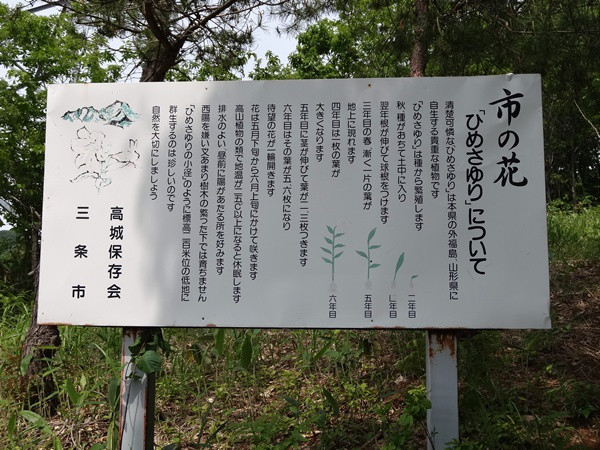 市の花
「ひめさゆり」について
清楚可憐な「ひめさゆり」は本県の外福島、山形県に
自生する貴重な植物です
「ひめさゆり」は種から繁殖します
秋 種がおちて土中に入り
翌年根が伸びて球根をつけます
三年目の春 漸く一片の葉が
地上に現れます
四年目は一枚の葉が
大きくなります
五年目に茎が伸びて葉が二・三枚つきます
六年目はその葉が五・六枚になり
待望の花が一輪開きます
花は五月下旬から六月上旬にかけて咲きます
高山植物の類で地温が二五℃以上になると休眠します
排水のよい 昼前に陽があたる所を好みます
西陽を嫌い又あまり樹木の繁った下では育ちません
「ひめさゆりの小径」のように標高二百米位の低地に
群生するのは珍しいのです
自然を大切にしましょう
高城保存会
三条市
二年目
五年目
六年目